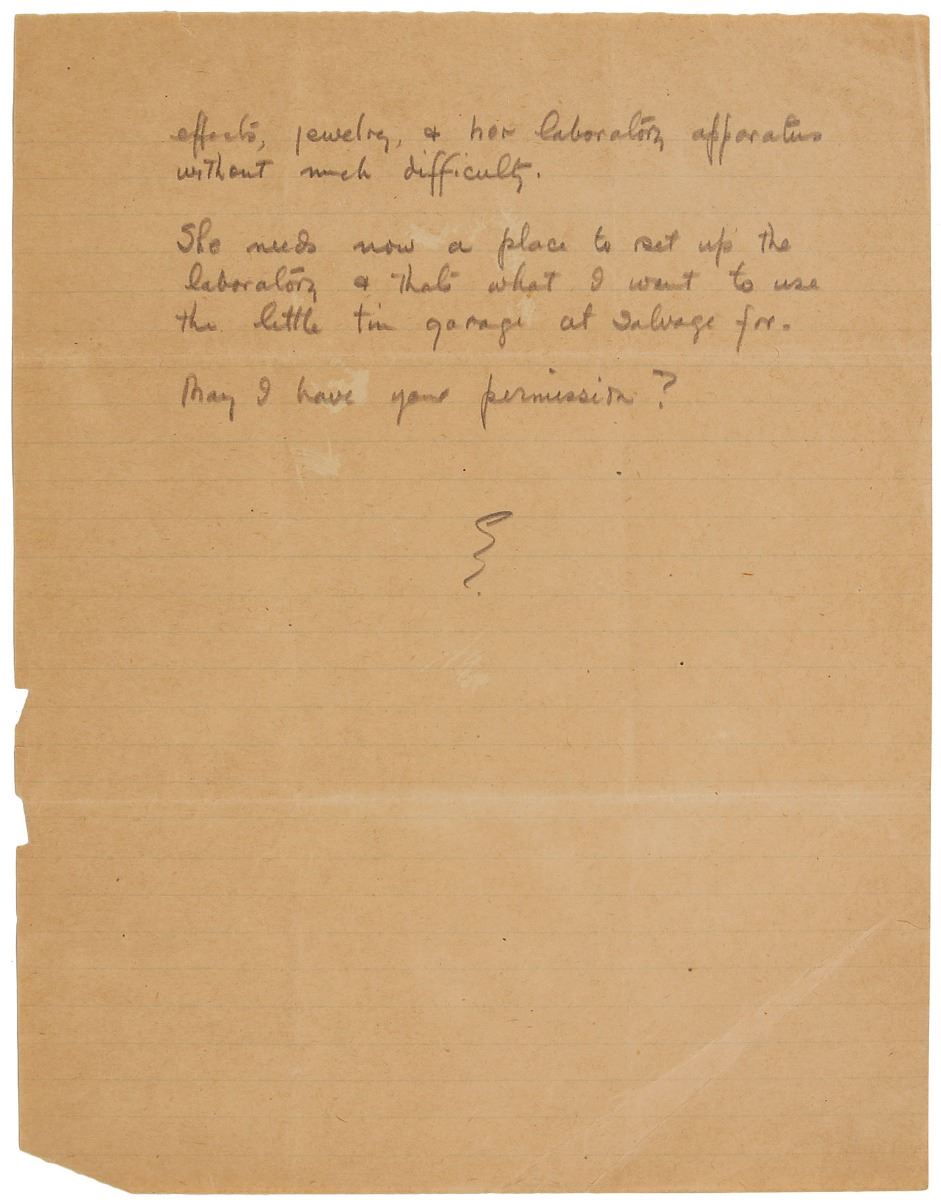 effects, jewelry, & her laboratory apparatus
without much difficulty.
She needs now a place to set up the
laboratory & thats what I want to use
the little tin garage at Salvage for.
May I have your permission?